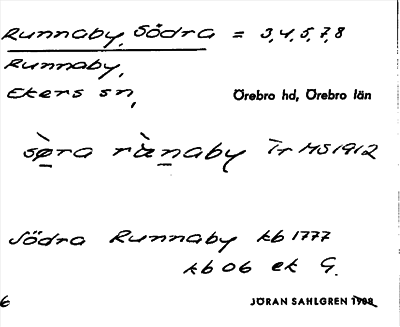 Runnaby, Södra = 3,4,5,7,8
Runnaby,
Ekers sn,
Örebro hd, Örebro län
sø̀ra ræ̀naby Ir MS 1912
Södra Runnaby kb 1777
kb 06 ek G.
6
JÖRAN SAHLGREN 1908